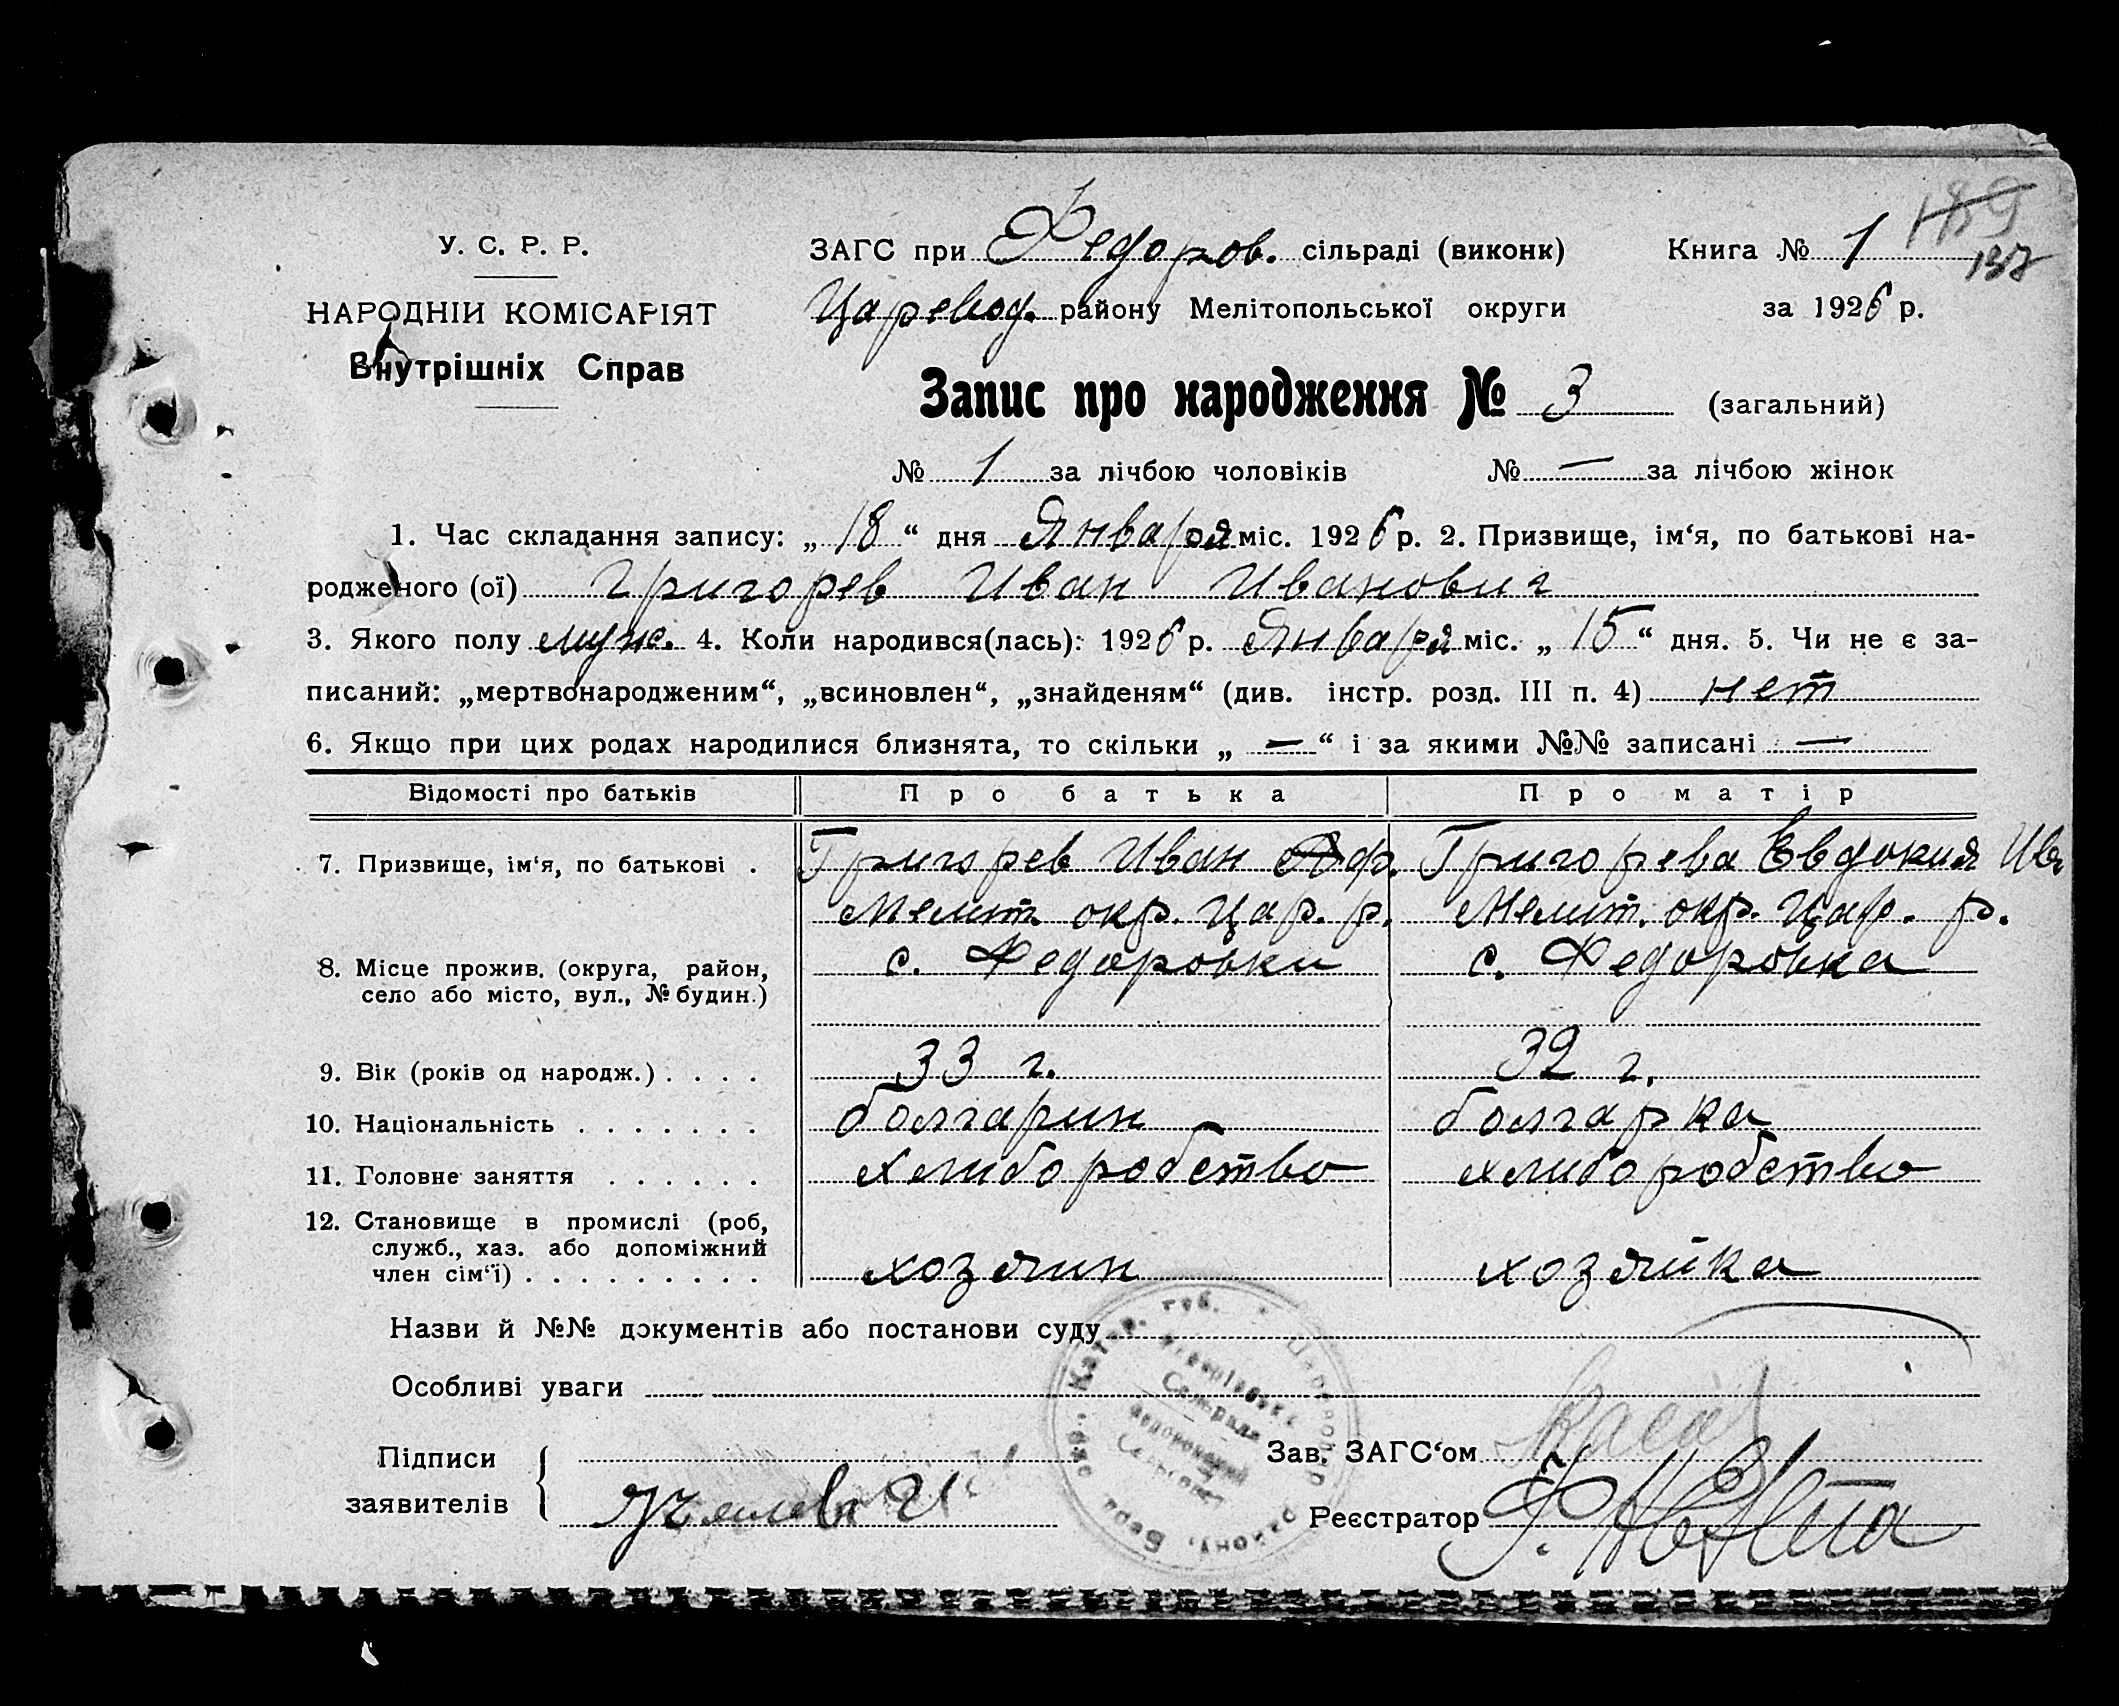 189
137
У. С. Р. Р.
НАРОДНІИ КОМІСАРІЯТ
Внутрішніх Справ
ЗАГС при Федоров. сільраді (виконк)
Царевод. району Мелітопольської округи
Книга № 1
за 1926 р.
Запис про народження № 3 (загальний)
№ 1 за лічбою чоловіків № — за лічбою жінок
1. Час складання запису: „ 18 “ дня Января міс. 1926 р. 2. Призвище, ім‘я, по батькові на-
родженого (ої) Григорев Иван Иванович
3. Якого полу муж. 4. Коли народився(лась): 1926 р. Января міс. „ 15 “ дня. 5. Чи не є за-
писаний: „мертвонародженим“, „всиновлен“, „знайденям“ (див. інстр. розд. III п. 4) нет
6. Якщо при цих родах народилися близнята, то скільки „ — “ і за якими №№ записані —
Відомості про батьків Про батька Про матір
7. Призвище, ім‘я, по батькові . Григорев Иван Аф. Григорева Евдокия Ив
Мелит. окр. Цар. р. Мелит. окр. Цар. р.
8. Місце прожив. (округа, район, с. Федоровки с. Федоровка
село або місто, вул., № будин.)
9. Вік (років од народж.) . . . . 33 г. 32 г.
10. Національність . . . . . . . болгарин болгарка
11. Головне заняття . . . . . . хлиборобство хлиборобство
12. Становище в промислі (роб,
служб., хаз. або допоміжний
член сім‘ї) . . . . . . . . . . хозяин хозяйка
Назви й №№ документів або постанови суду
Особливі уваги
Підписи
заявителів
Зав. ЗАГС‘ом
Реєстратор